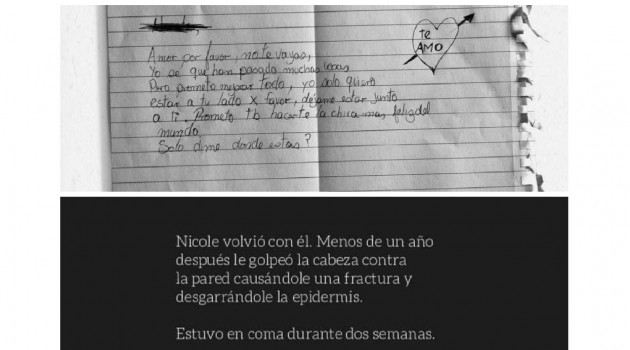 te
AMO
Amor por favor, no te vayas,
Yo se que han pasado muchas cosas
Pero prometo mejorar todo, yo solo quiero
estar a tu lado x favor, déjame estar junto
a ti. Prometo tb hacerte la chica mas feliz del
mundo
Solo dime donde estas?
Nicole volvió con él. Menos de un año
después le golpeó la cabeza contra
la pared causándole una fractura y
desgarrándole la epidermis.
Estuvo en coma durante dos semanas.